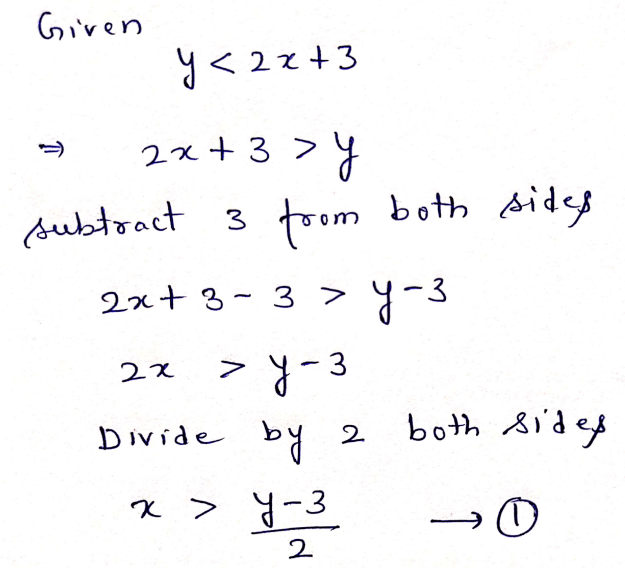 Given
y < 2x + 3
⇒ 2x + 3 > y
subtract 3 from both sides
2x + 3 - 3 > y - 3
2x > y - 3
Divide by 2 both sides
x > (y - 3)/2 → ①